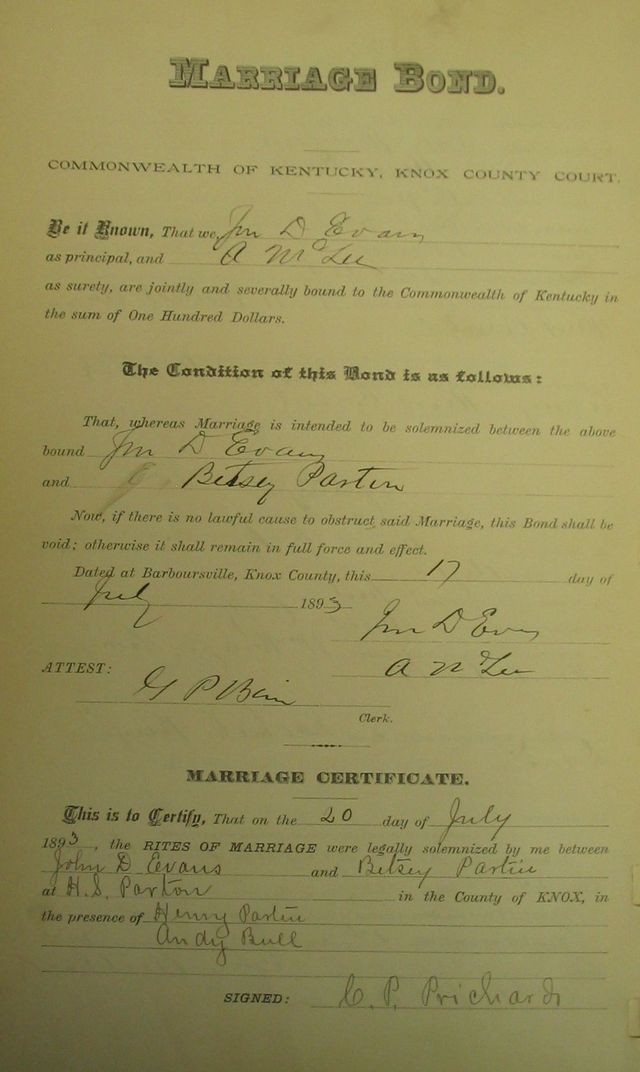 MARRIAGE BOND.
COMMONWEALTH OF KENTUCKY, KNOX COUNTY COURT.
Be it Known, That we, Jno D Evans
as principal, and A McLee
as surety, are jointly and severally bound to the Commonwealth of Kentucky in
the sum of One Hundred Dollars.
The Condition of this Bond is as follows:
That, whereas Marriage is intended to be solemnized between the above
bound Jno D Evans
and Betsey Partin
Now, if there is no lawful cause to obstruct said Marriage, this Bond shall be
void; otherwise it shall remain in full force and effect.
Dated at Barboursville, Knox County, this 17 day of
July 1893
Jno D Evans
ATTEST: A McLee
G P Bain
Clerk.
MARRIAGE CERTIFICATE.
This is to Certify, That on the 20 day of July
1893, the RITES OF MARRIAGE were legally solemnized by me between
John D Evans and Betsey Partin
at H. S. Parton in the County of KNOX, in
the presence of Henry Partin
Andy Bull
SIGNED: C. P. Prichard